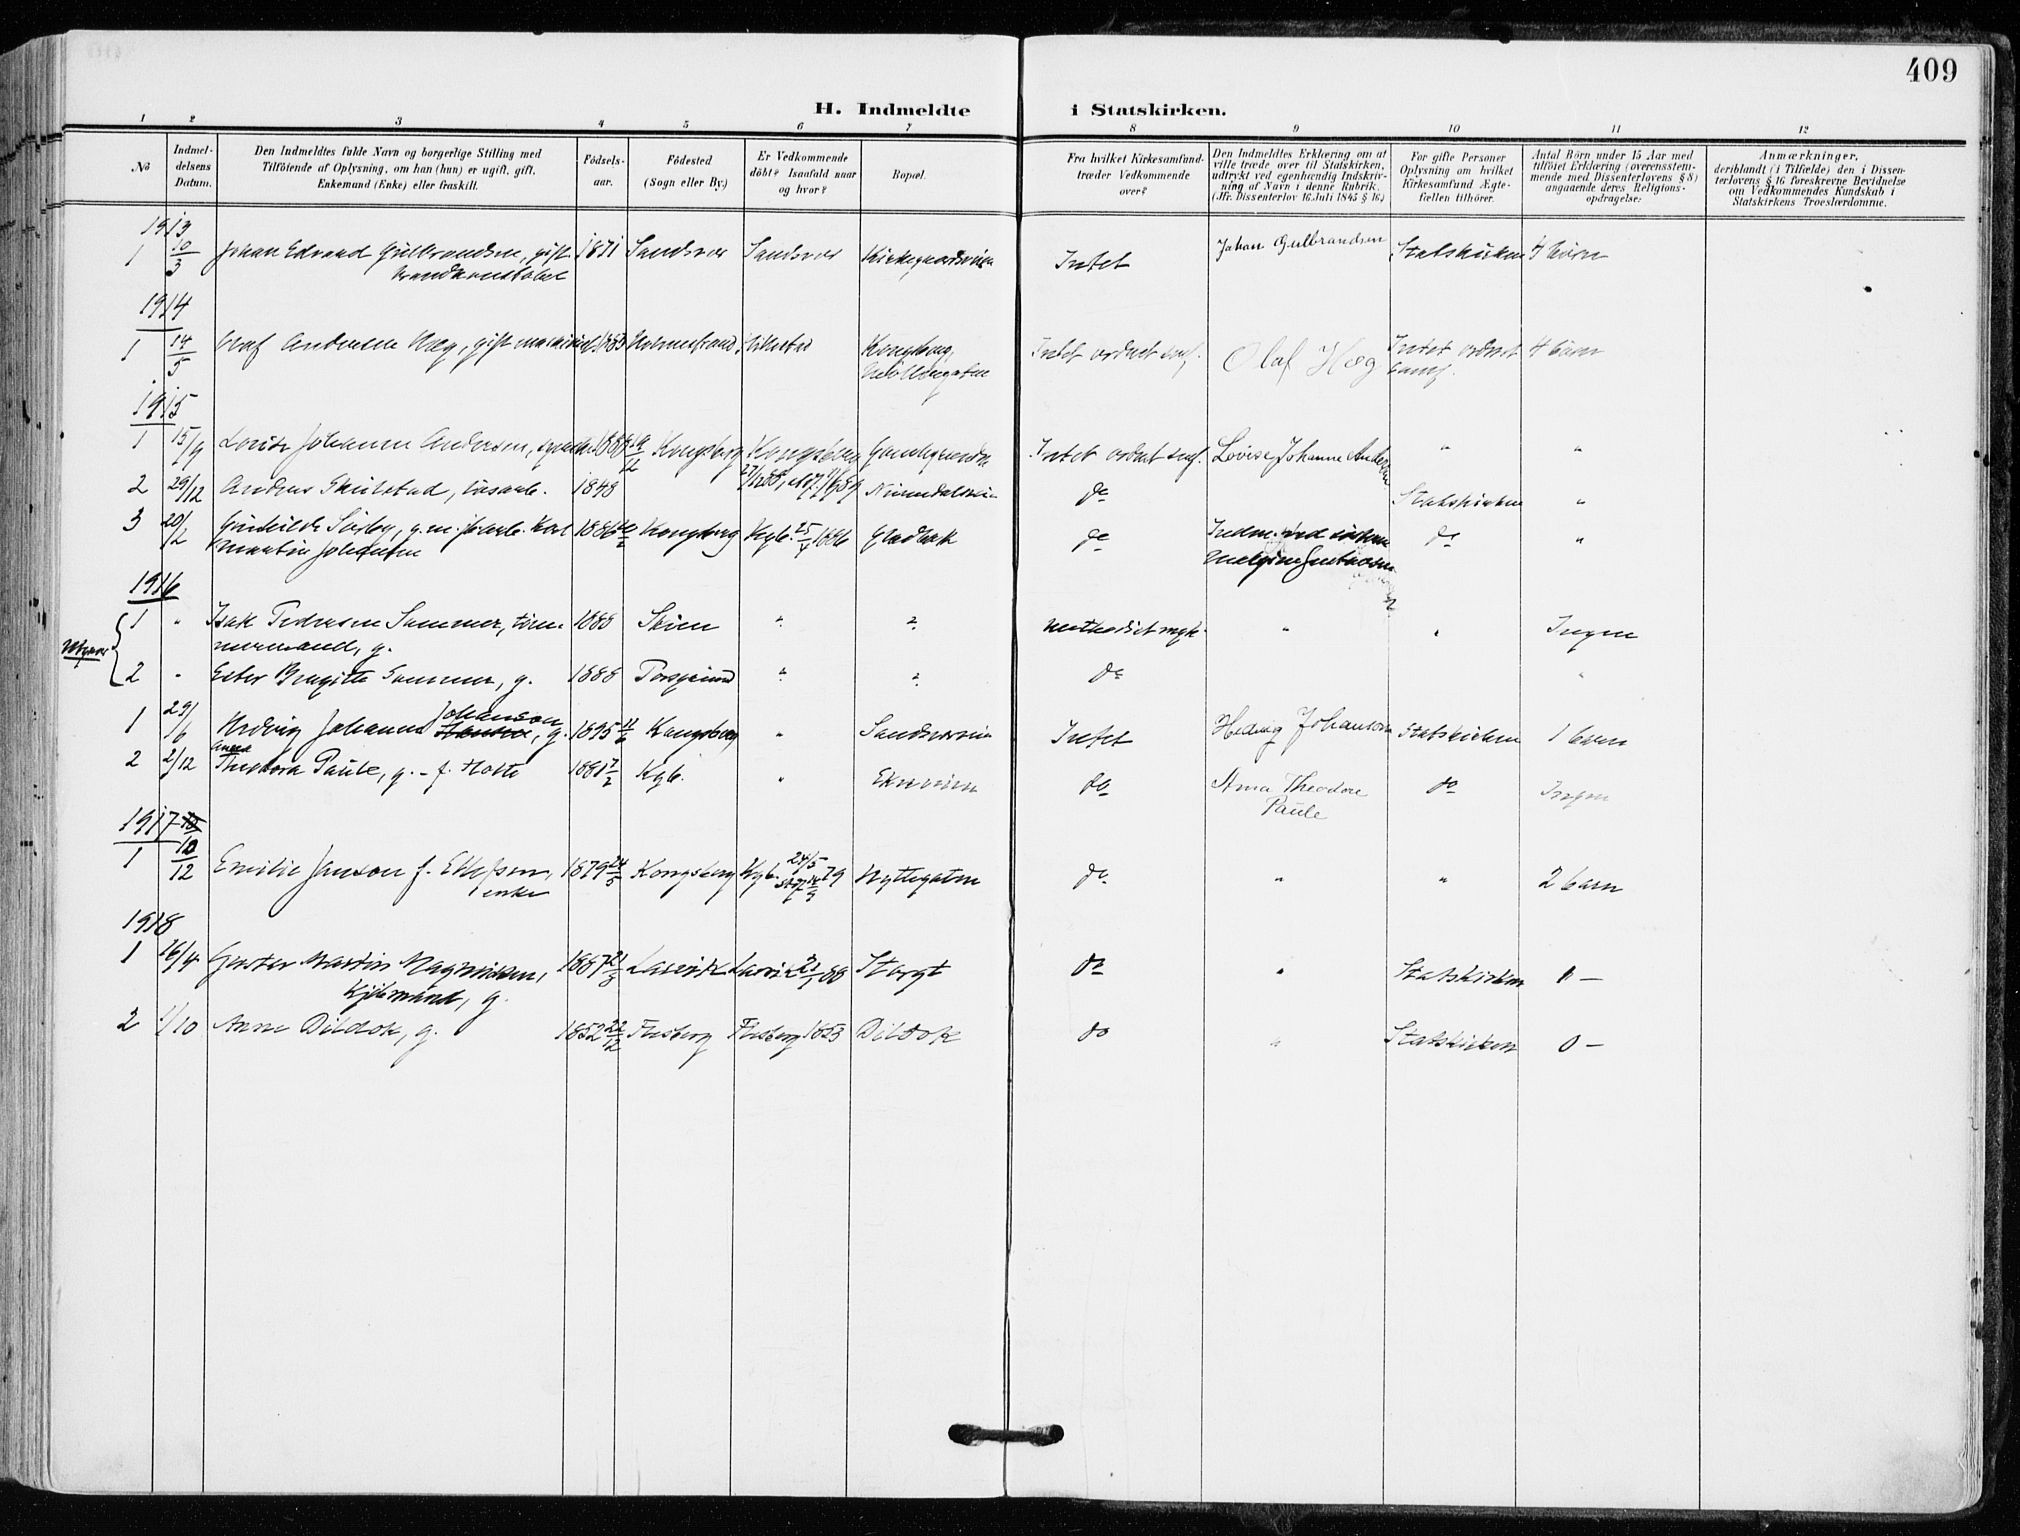 409
H. Indmeldte i Statskirken.
1 2 3 4 5 6 7 8 9 10 11 12
No
Indmel-
delsens
Datum.
Den Indmeldtes fulde Navn og borgerlige Stilling med
Tilföiende af Oplysning, om han (hun) er ugift, gift,
Enkemand (Enke) eller fraskilt.
Födsels-
aar.
Födested
(Sogn eller By.)
Er Vedkommende
döbt? Isaafald naar
og hvor?
Bopæl.
Fra hvilket Kirkesamfund
træder Vedkommende
over?
Den Indmeldtes Erklæring om at
ville træde over til Statskirken,
udtrykt ved egenhændig Indskriv-
ning af Navn i denne Rubrik.
(Jfr. Dissenterlov 16 Juli 1845 § 16.)
For gifte Personer
Oplysning om hvilket
Kirkesamfund Ægte-
fællen tilhörer.
Antal Börn under 15 Aar med
tilföiet Erklæring (overensstem-
mende med Dissenterlovens § 8)
angaaende deres Religions-
opdragelse:
Anmærkninger,
deriblandt (i Tilfælde) den i Dissen-
terlovens § 16 foreskrevne Bevidnelse
om Vedkommendes Kundskab i
Statskirkens Troeslærdomme.
1913
1 10/3 Johan Edvard Gulbrandsen, gift 1871 Sandsvær Sandsvær Kirkegaardsveien Intet Johan Gulbrandsen Statskirken 4 börn
brandkonstabel
1914
1 14/5 Olaf Andersen Hæg, gift 1883 Holmestrand Kongsberg, Intet ordnet samf. Olaf Hæg Intet ordnet 4 barn
samf.
1915
1 15/9 Lovise Johanne Andersen, 1888 19/12 Kongsberg Kongsberg Intet ordnet samf. Lovise Johanne Andersen " "
2 29/12 Andreas Skulstad, løsarb. 1848 Numedalsvei do Statskirken "
3 20/2 Gunhilde g.m. Karl 1886 Kongsberg Kgb. 25/4 1886 Gladbak do Indm. ved do "
Martin Johansen
1916
1 " Isak Pedersen Sommer, tøm- 1888 Skien " " Methodist " " Ingen
mermand, g.
2 " Ester Birgitte Sommer, g. 1888 Porsgrund " " do "
1 29/6 Hedvig Johanne Johanson, g. 1895 Kongsberg " Sandsværvei Intet Hedvig Johanson Statskirken 1 barn
2 2/12 Anna Theodora Paule, g. - f. Holte 1881 7/2 Kgb. " do Anna Theodore do Ingen
Paule
1917
1 10/12 Emilie Janson f. Ellefsen, 1879 24/5 Kongsberg Kgb. 24/5 79 Hyttegaten do " " 2 barn
enke
1918
1 16/4 Martin 1887 21/3 Larvik Larvik Storgt do " Statskirken 0 —
Kjøbmand, g.
2 1/10 Anne Dildok, g. 1852 22/12 Flesberg Flesberg 1853 Dildok do " Statskirken 0 —